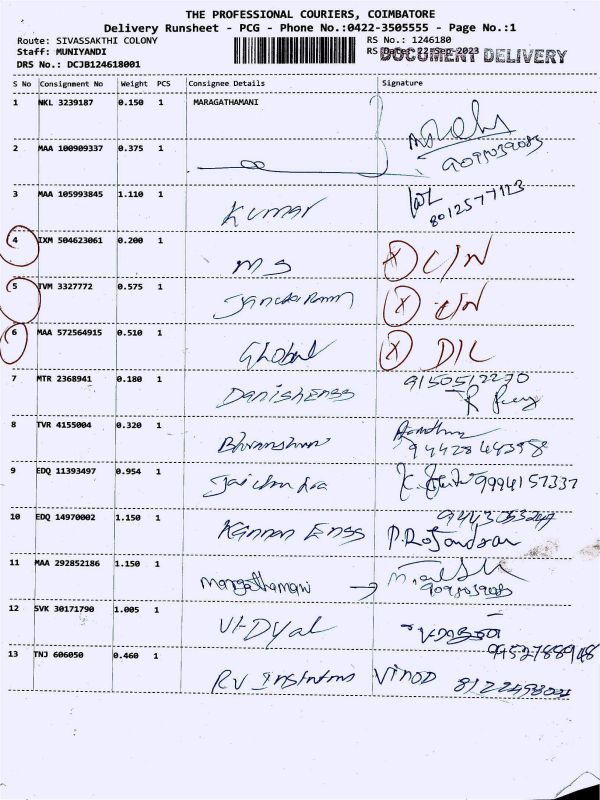 THE PROFESSIONAL COURIERS, COIMBATORE
Delivery Runsheet - PCG - Phone No.:0422-3505555 - Page No.:1
Route: SIVASSAKTHI COLONY RS No.: 1246180
Staff: MUNIYANDI RS Date: 22-Sep-2023 DOCUMENT DELIVERY
DRS No.: DCJB124618001
S No Consignment No Weight PCS Consignee Details Signature
1 NKL 3239187 0.150 1 MARAGATHAMANI
2 MAA 100909337 0.375 1 9095039083
3 MAA 105993845 1.110 1 Kumar 8012577123
4 IXM 504623061 0.200 1 MS X C/N
5 TVM 3327772 0.575 1 X C/N
6 MAA 572564915 0.510 1 Global X D/L
7 MTR 2368941 0.180 1 Danish Engg 9150512270
8 TVR 4155004 0.320 1
9 EDQ 11393497 0.954 1 9994157337
10 EDQ 14970002 1.150 1 Kannan Engg
11 MAA 292852186 1.150 1 → 9095039083
12 SVK 30171790 1.005 1
9952788948
13 TNJ 606050 0.460 1 RV Vinod